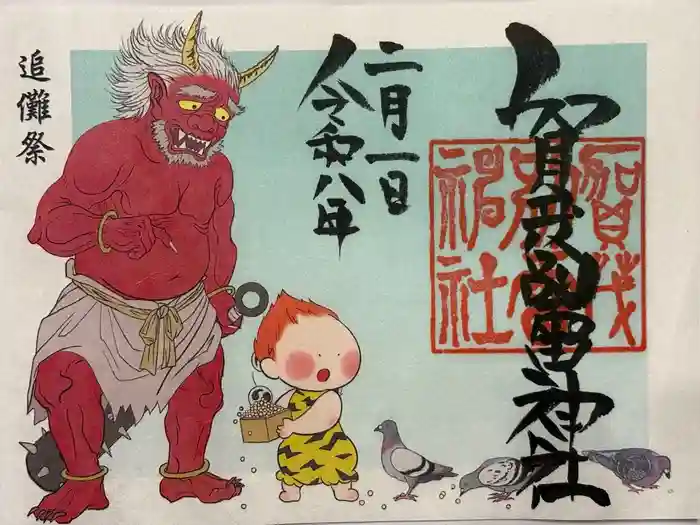 賀茂別雷神社
賀茂
神社
二月一日
令和八年
追儺祭